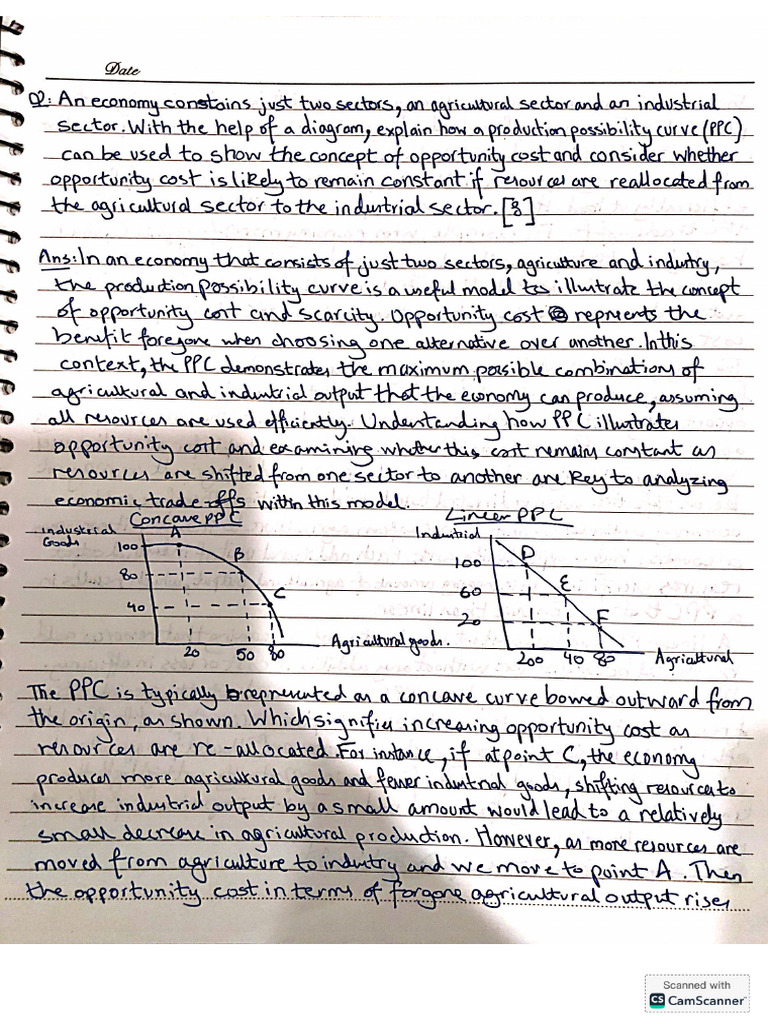 Date
Q2: An economy constains just two sectors, an agricultural sector and an industrial
sector. With the help of a diagram, explain how a production possibility curve (PPC)
can be used to show the concept of opportunity cost and consider whether
opportunity cost is likely to remain constant if resources are reallocated from
the agricultural sector to the industrial sector. [8]
Ans: In an economy that consists of just two sectors, agriculture and industry,
the production possibility curve is a useful model to illustrate the concept
of opportunity cost and scarcity. Opportunity cost represents the
benefit foregone when choosing one alternative over another. In this
context, the PPC demonstrates the maximum possible combinations of
agricultural and industrial output that the economy can produce, assuming
all resources are used efficiently. Understanding how PPC illustrates
opportunity cost and examining whether this cost remains constant as
resources are shifted from one sector to another are key to analyzing
economic trade-offs within this model.
Concave PPC
Linear PPC
Industrial
Goods
100
80
40
A
B
C
20 50 80
Agricultural goods.
Industrial
100
60
20
D
E
F
200 40 80
Agricultural
The PPC is typically represented as a concave curve bowed outward from
the origin, as shown. Which signifies increasing opportunity cost as
resources are re-allocated. For instance, if at point C, the economy
produces more agricultural goods and fewer industrial goods, shifting resources to
increase industrial output by a small amount would lead to a relatively
small decrease in agricultural production. However, as more resources are
moved from agriculture to industry and we move to point A. Then
the opportunity cost in terms of forgone agricultural output rises
Scanned with
CS CamScanner